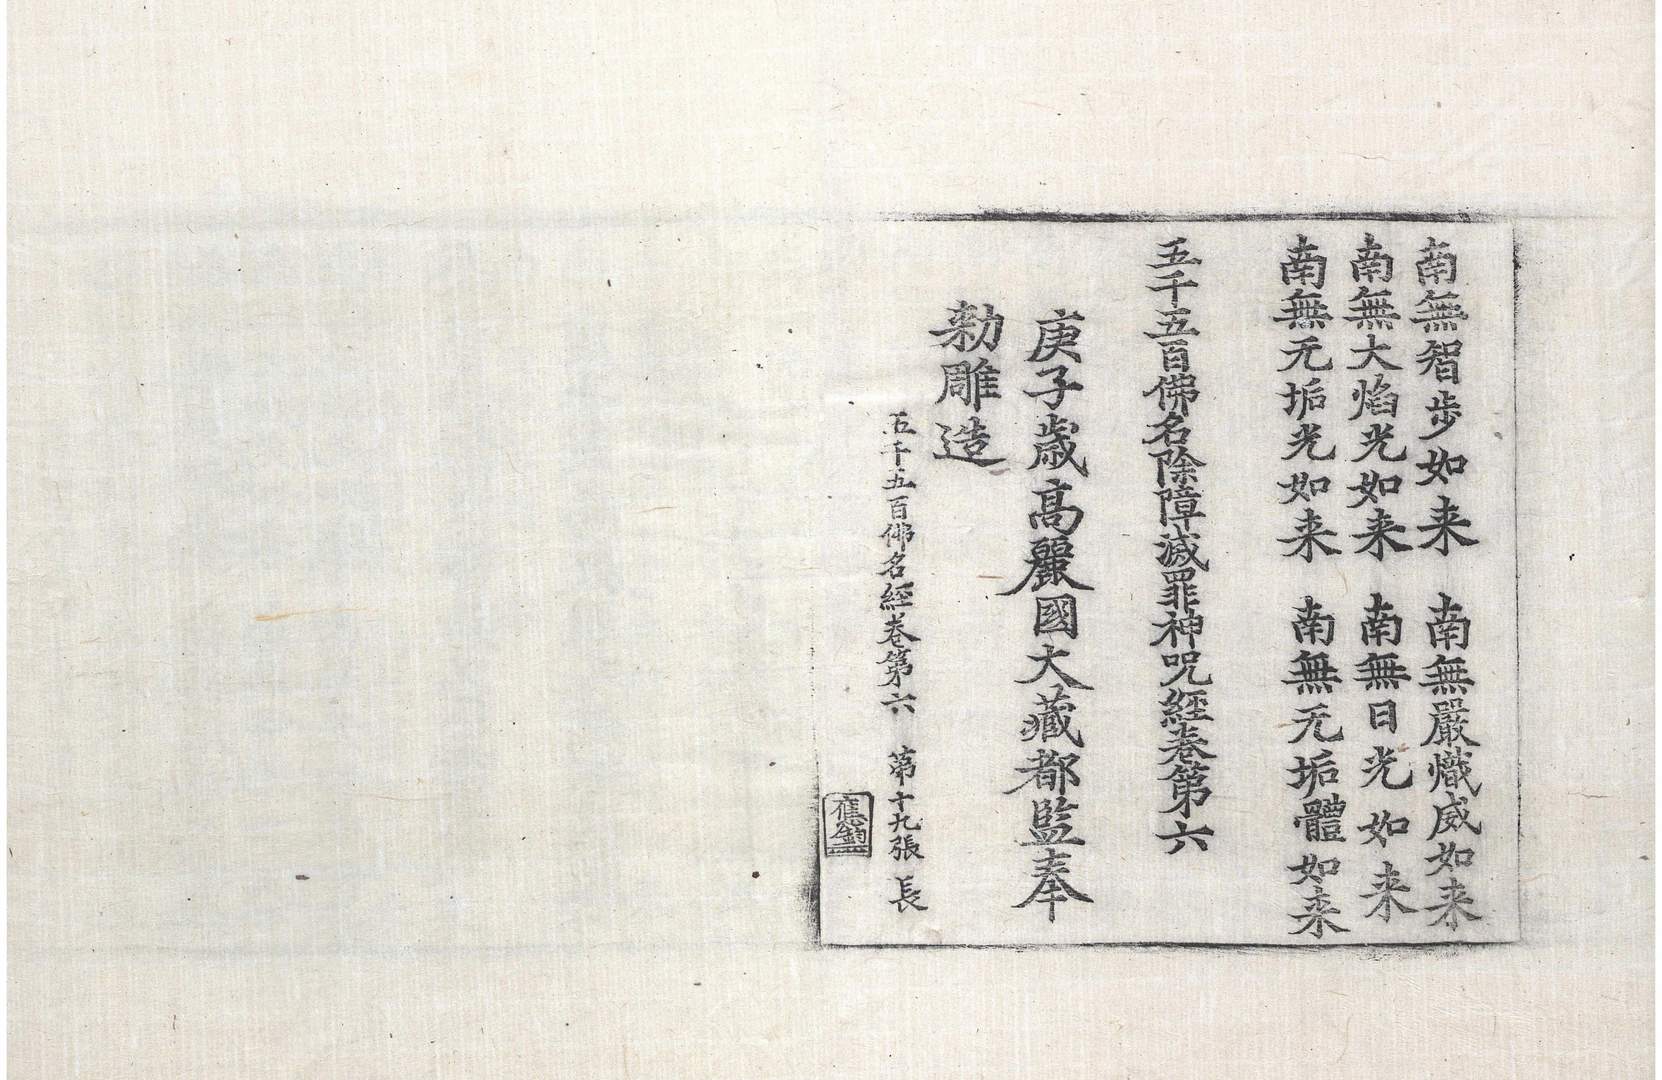 南無智步如来　南無嚴熾威如来
南無大焰光如来　南無日光如来
南無无垢光如来　南無无垢體如来
五千五百佛名除障滅罪神呪經卷第六
庚子歳高麗國大藏都監奉
勑雕造
五千五百佛名經卷第六　第十九張　長